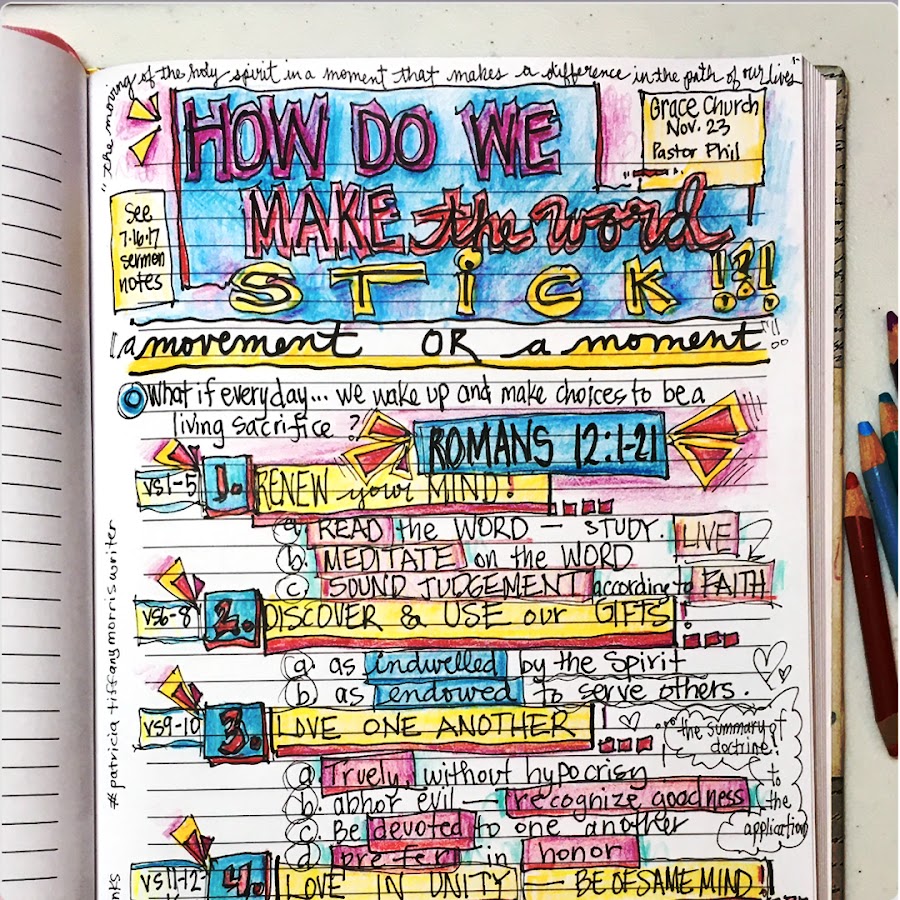 "the moving of the holy spirit in a moment that makes a difference in the path of our lives"
HOW DO WE
MAKE the word
STiCK!?!
Grace Church
Nov. 23
Pastor Phil
See
7.16.17
sermon
notes
a movement OR a moment!!
What if everyday... we wake up and make choices to be a
living sacrifice?
ROMANS 12:1-21
vs 1-5 1. RENEW your MIND!
a. READ the WORD — STUDY. LIVE
b. MEDITATE on the WORD
c. SOUND JUDGEMENT according to FAITH
vs 6-8 2. DISCOVER & USE our GIFTS!
a. as indwelled by the Spirit
b. as endowed to serve others.
vs 9-10 3. LOVE ONE ANOTHER
a. Truely, without hypocrisy
b. abhor evil — recognize goodness
c. Be devoted to one another
d. prefer in honor
the summary of
doctrine!
to
the
application
vs 11-12 4. LOVE IN UNITY — BE OF SAME MIND!
#patricia tiffany morris writer